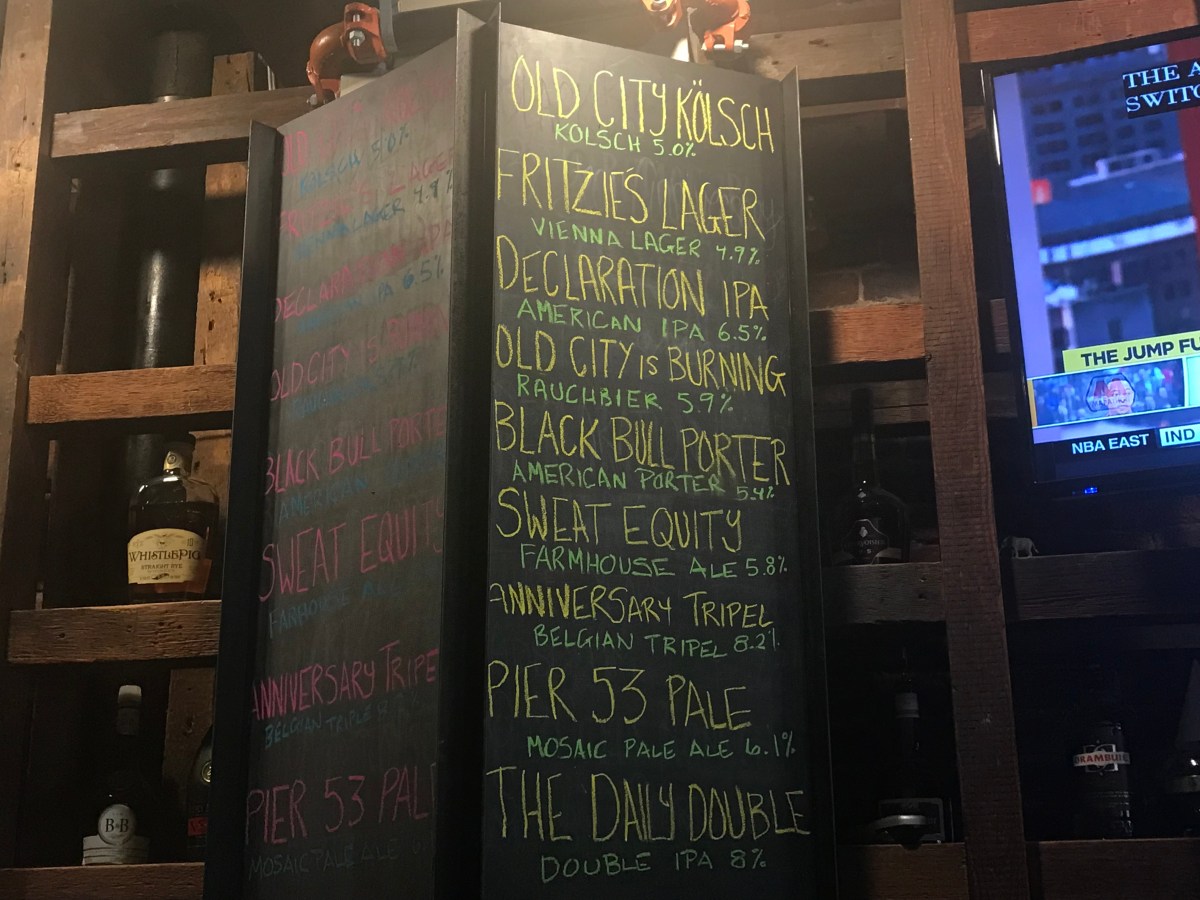 OLD CITY KÖLSCH
KOLSCH 5.0%
FRITZIE'S LAGER
VIENNA LAGER 4.9%
DECLARATION IPA
AMERICAN IPA 6.5%
OLD CITY IS BURNING
RAUCHBIER 5.9%
BLACK BULL PORTER
AMERICAN PORTER 5.4%
SWEAT EQUITY
FARMHOUSE ALE 5.8%
ANNIVERSARY TRIPEL
BELGIAN TRIPEL 8.2%
PIER 53 PALE
MOSAIC PALE ALE 6.1%
THE DAILY DOUBLE
DOUBLE IPA 8%
KOLSCH 5.0%
LAGER
LAGER 4.9%
IPA 6.5%
OLD CITY IS
BLACK BULL PORTE
AMERICAN
SWEAT EQUITY
FARHOUSE
ANNIVERSARY TRIPE
BELGIAN TRIPLE
PIER 53 PAL
MOSAIC PALE ALE
WHISTLEPIG
STRAIGHT RYE
B&B
THE A
SWITC
THE JUMP FU
NBA EAST
IND
DRAMBUIE